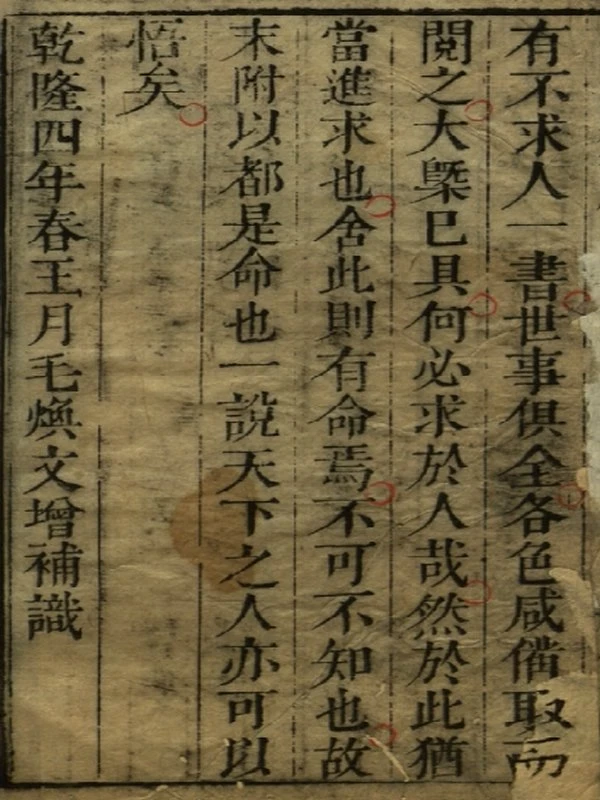 有不求人一書世事俱全各色咸俻取而
閱之大槩已具何必求於人哉然於此猶
當進求也舍此則有命焉不可不知也故
末附以都是命也一說天下之人亦可以
悟矣
乾隆四年春王月毛煥文增補識